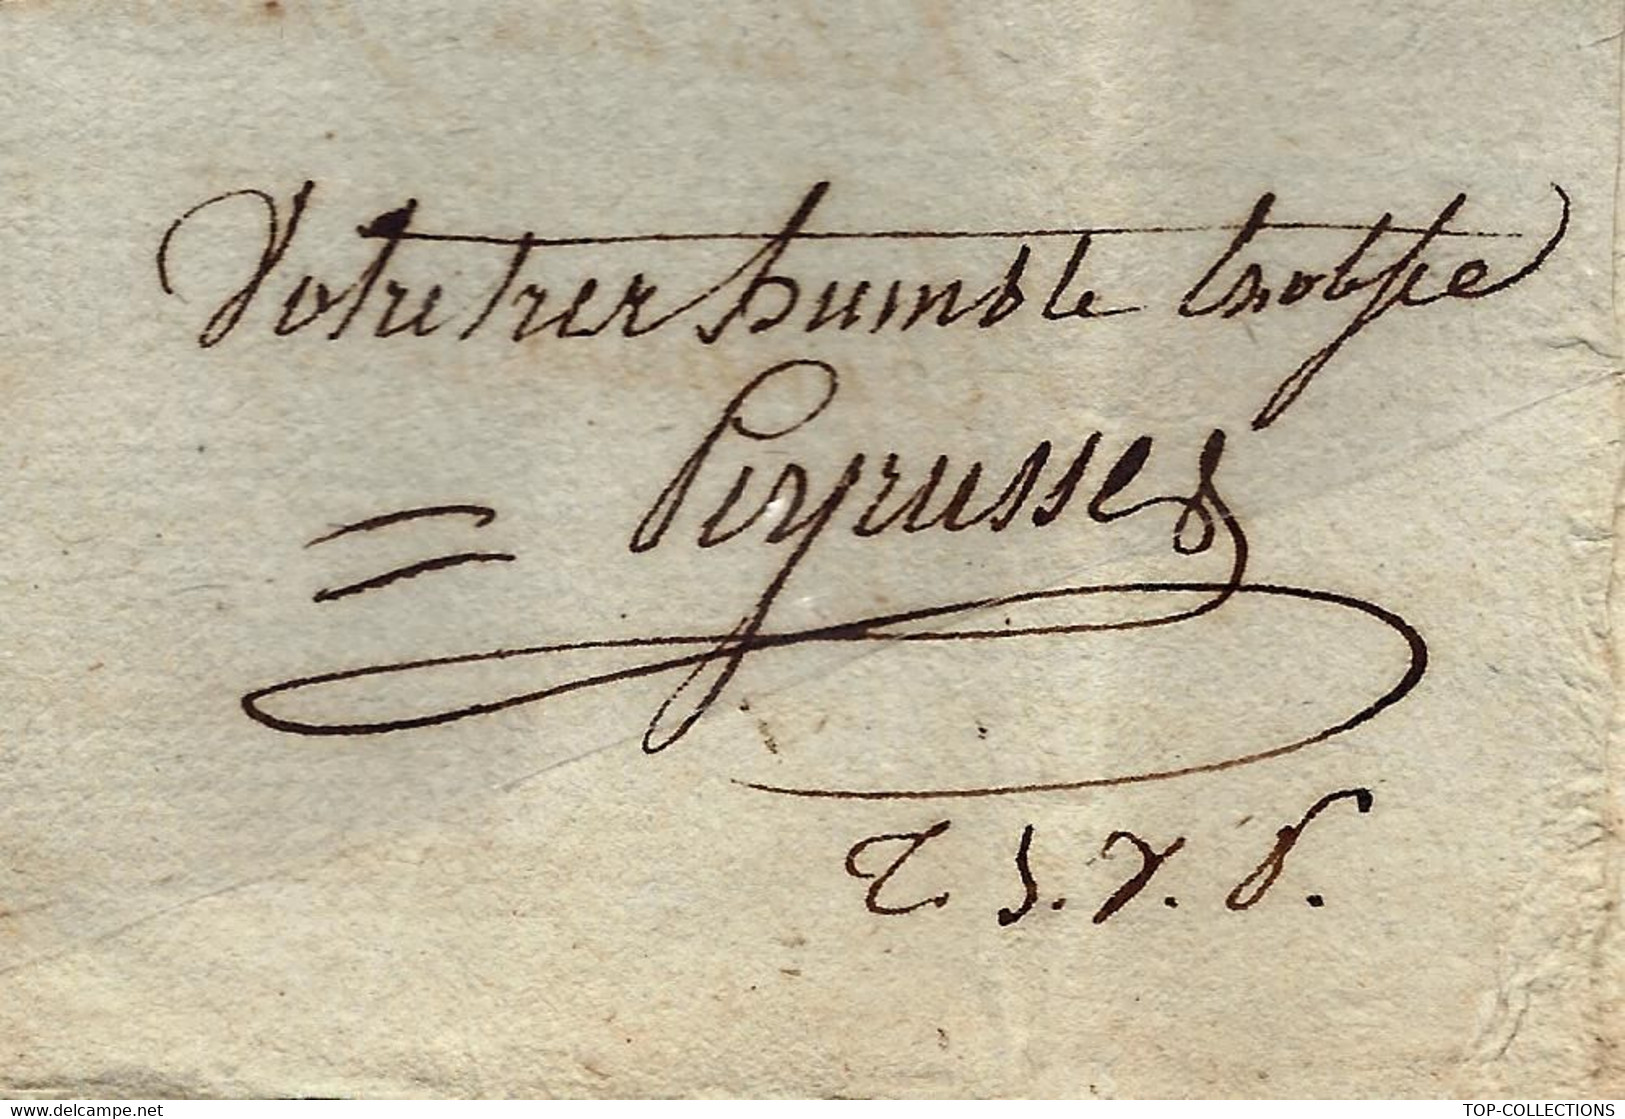 Votre tres humble & obsse
Peyrusse
T. S. V. P.
www.delcampe.net
TOP-COLLECTIONS